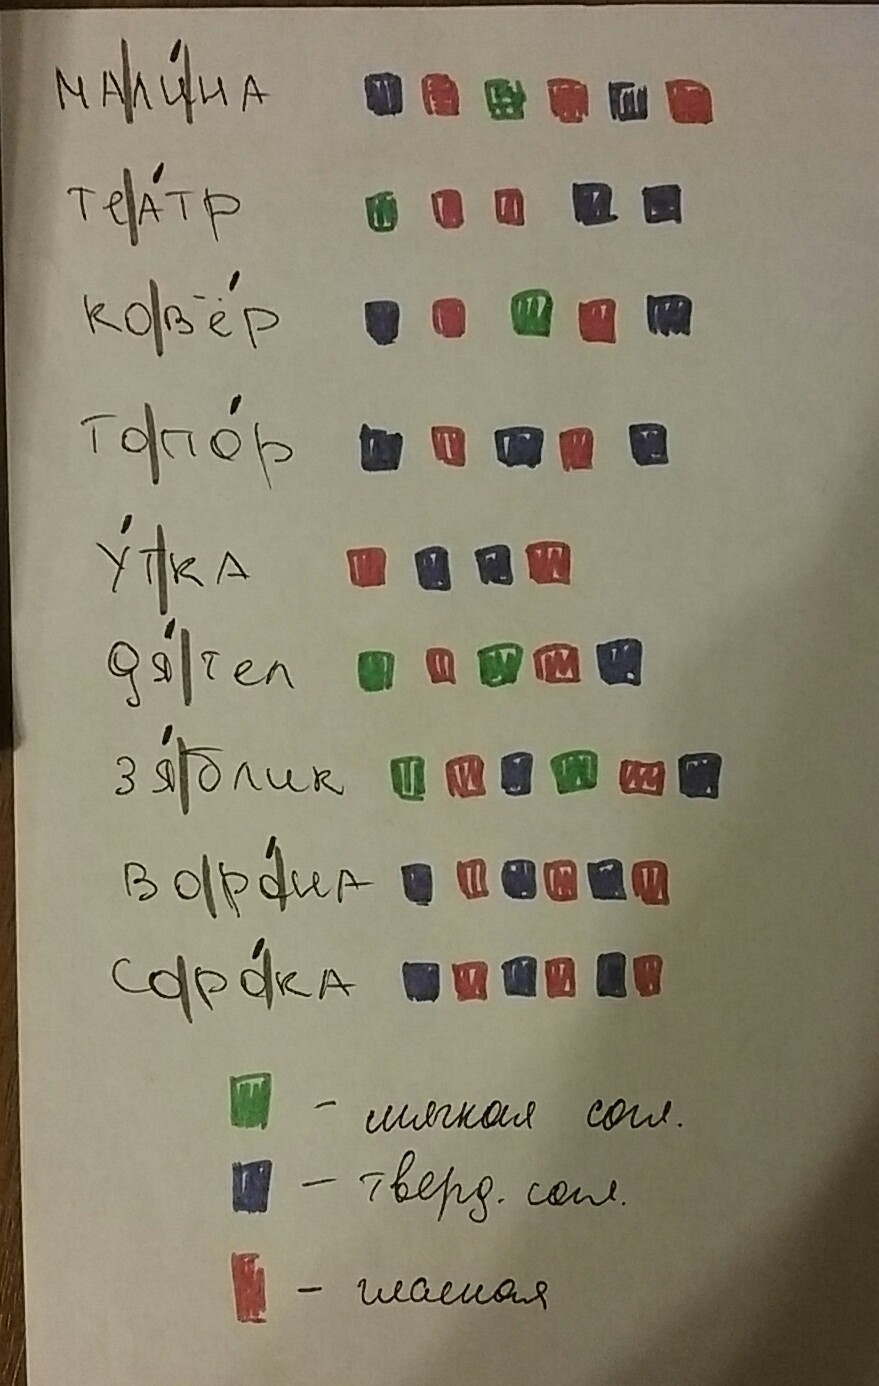 МАЛИ́НА
ТеА́ТР
КОВЁ́Р
ТОПО́Р
У́ТКА
ДЯ́Тел
ЗЯ́блик
ВОРО́НА
СОРО́КА
- мягкая согл.
- тверд. согл.
- гласная